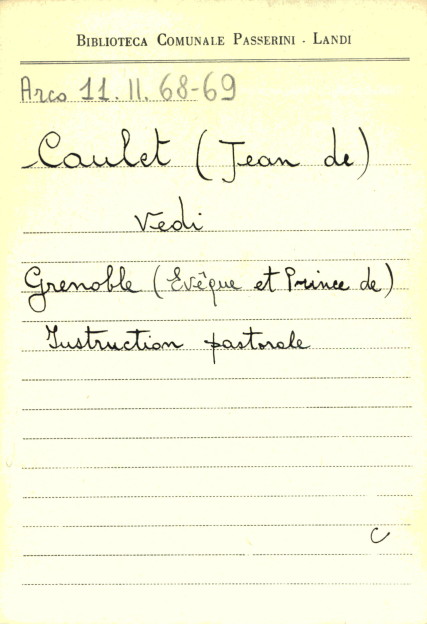 BIBLIOTECA COMUNALE PASSERINI - LANDI
Arco 11. II. 68-69
Caulet (Jean de)
Vedi
Grenoble (Evêque et Prince de)
Instruction pastorale
C